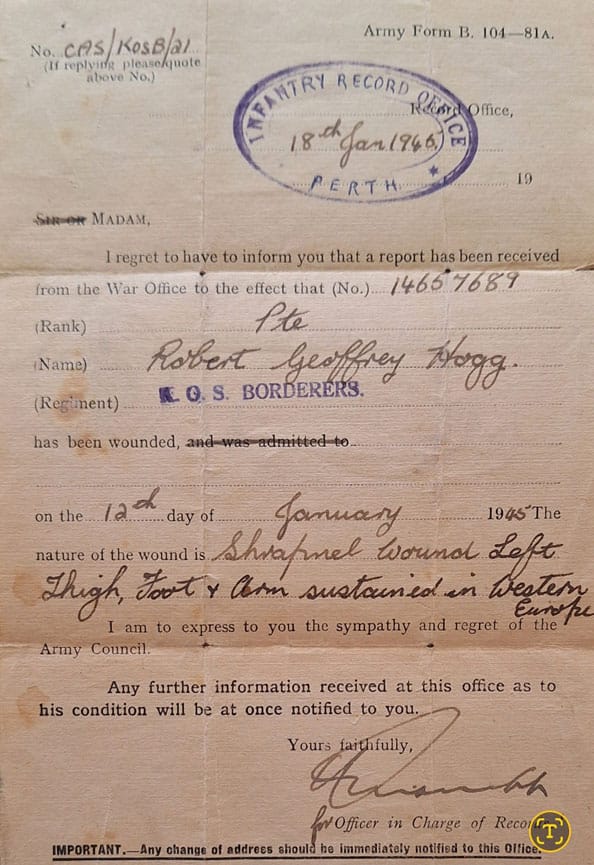 Army Form B. 104—81A.
No. CAS/KOSB/21
(If replying please quote
above No.)
INFANTRY RECORD OFFICE
PERTH
Record Office,
18th Jan 1945.
19
SIR OR MADAM,
I regret to have to inform you that a report has been received
from the War Office to the effect that (No.) 14657689
(Rank) Pte
(Name) Robert Geoffrey Hogg.
(Regiment) K. O. S. BORDERERS.
has been wounded, and was admitted to
on the 12th day of January 1945 The
nature of the wound is Shrapnel Wound Left
Thigh, Foot & Arm sustained in Western
Europe
I am to express to you the sympathy and regret of the
Army Council.
Any further information received at this office as to
his condition will be at once notified to you.
Yours faithfully,
for Officer in Charge of
IMPORTANT.—Any change of address should be immediately notified to this Office.
T